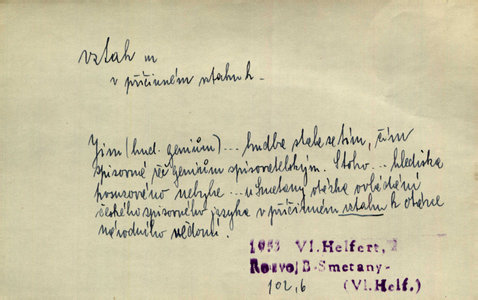 vztah m
v příčinném vztahu k
Jim (hud. geniům)... hudba stala se tím, čím
spisovná řeč geniům spisovatelským. Z toho... hlediska
pouze nového nebylo... u Smetany otázka ovládání
českého spisovného jazyka v příčinném vztahu k otázce
národního vědomí.
1953 Vl. Helfert,
Rozvoj B. Smetany-
102,6 (Vl. Helf.)